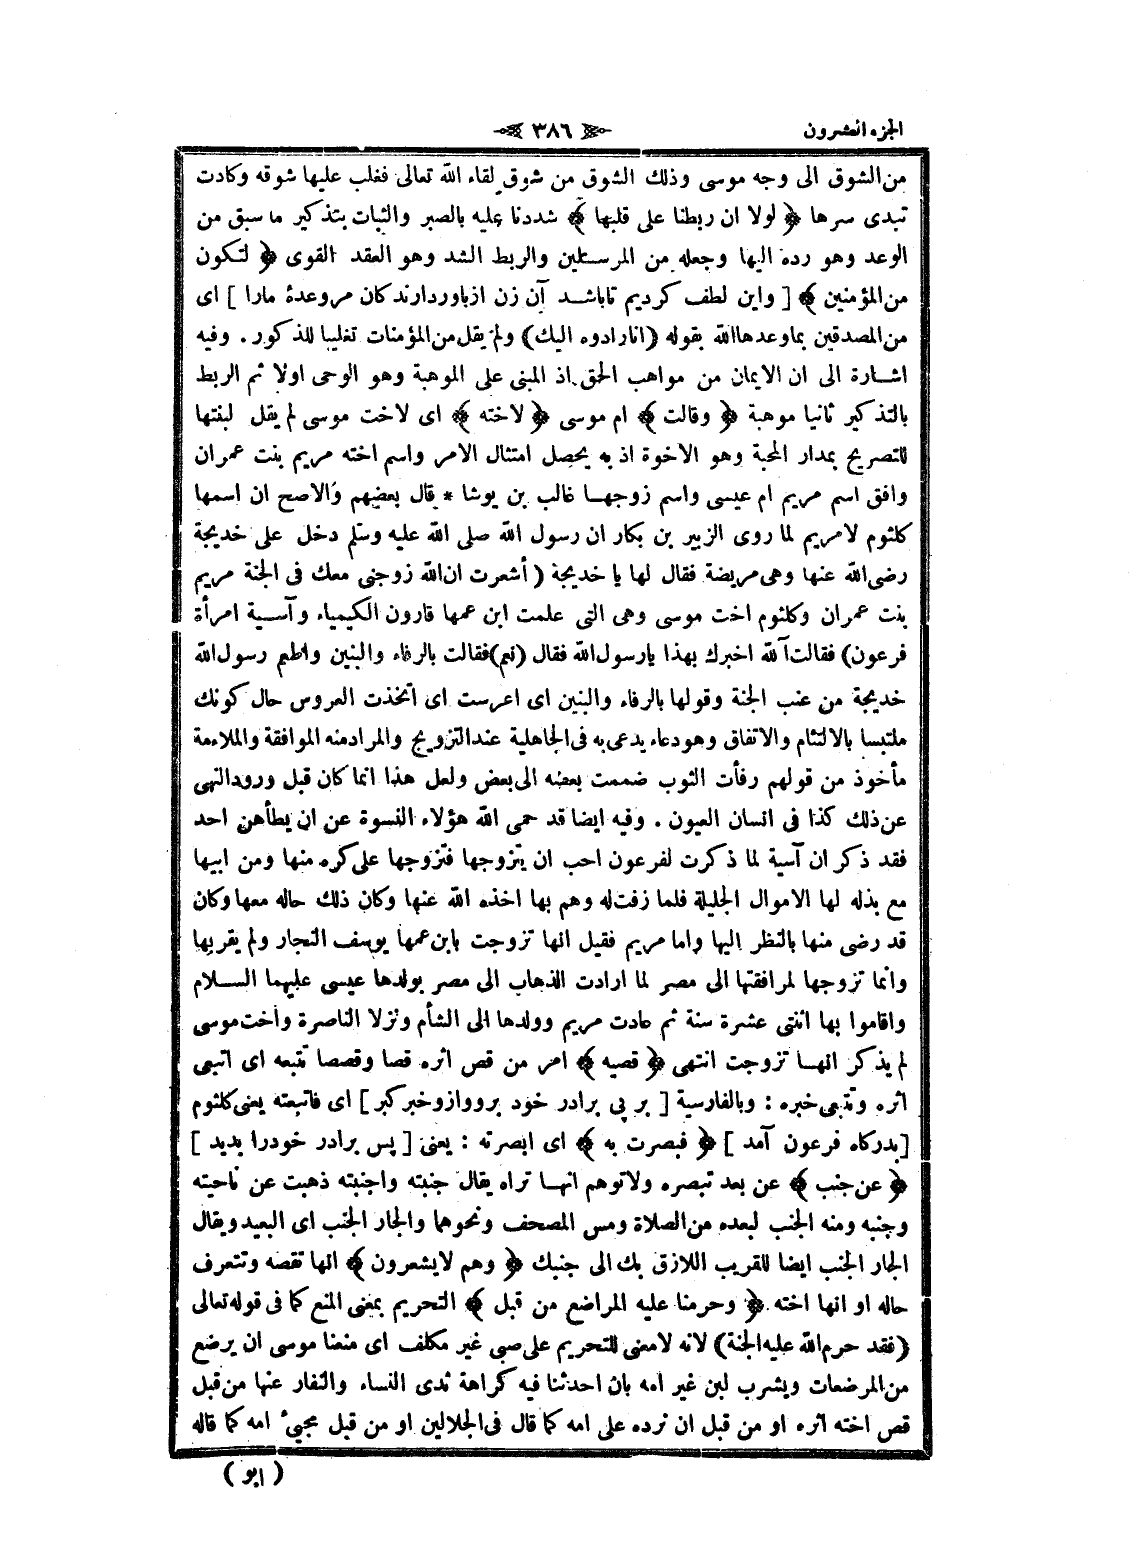 الجزء العشرون
٣٨٦
من الشوق الى وجه موسى وذلك الشوق من شوق لقاء الله تعالى فغلب عليها شوقه وكادت
تبدى سرها ﴿ لولا ان ربطنا على قلبها ﴾ شددنا عليه بالصبر والثبات بتذكير ما سبق من
الوعد وهو رده اليها وجعله من المرسلين والربط الشد وهو العقد القوى ﴿ لتكون
من المؤمنين ﴾ [ واين لطف كرديم تاباشد آن زن ازباوردارندكان مروعدۀ مارا ] اى
من المصدقين بماوعدهاالله بقوله (انارادوه اليك) ولم يقل من المؤمنات تغليبا للذكور . وفيه
اشارة الى ان الايمان من مواهب الحق اذ المبنى على الموهبة وهو الوحى اولا ثم الربط
بالتذكير ثانيا موهبة ﴿ وقالت ﴾ ام موسى ﴿ لاخته ﴾ اى لاخت موسى لم يقل لبنتها
للتصريح بمدار المحبة وهو الاخوة اذ به يحصل امتثال الامر واسم اخته مريم بنت عمران
وافق اسم مريم ام عيسى واسم زوجها غالب بن يوشا * قال بعضهم والاصح ان اسمها
كلثوم لامريم لما روى الزبير بن بكار ان رسول الله صلى الله عليه وسلم دخل على خديجة
رضى الله عنها وهى مريضة فقال لها يا خديجة ( أشعرت ان الله زوجنى معك فى الجنة مريم
بنت عمران وكلثوم اخت موسى وهى التى علمت ابن عمها قارون الكيمياء وآسية امرأة
فرعون) فقالت آلله اخبرك بهذا يارسول الله فقال (نعم) فقالت بالرفاء والبنين واطعم رسول الله
خديجة من عنب الجنة وقولها بالرفاء والبنين اى اعرست اى اتخذت العروس حال كونك
ملتبسا بالالتئام والاتفاق وهو دعاء يدعى به فى الجاهلية عند التزويج والمراد منه الموافقة والملاءمة
مأخوذ من قولهم رفأت الثوب ضممت بعضه الى بعض ولعل هذا انما كان قبل ورود النهى
عن ذلك كذا فى انسان العيون . وفيه ايضا قد حمى الله هؤلاء النسوة عن ان يطأهن احد
فقد ذكر ان آسية لما ذكرت لفرعون احب ان يتزوجها فتزوجها على كره منها ومن ابيها
مع بذله لها الاموال الجليلة فلما زفت له وهم بها اخذه الله عنها وكان ذلك حاله معها وكان
قد رضى منها بالنظر اليها واما مريم فقيل انها تزوجت بابن عمها يوسف النجار ولم يقربها
وانما تزوجها لمرافقتها الى مصر لما ارادت الذهاب الى مصر بولدها عيسى عليهما السلام
واقاموا بها اثنتى عشرة سنة ثم عادت مريم وولدها الى الشأم ونزلا الناصرة واخت موسى
لم يذكر انها تزوجت انتهى ﴿ قصيه ﴾ امر من قص اثره قصا وقصصا تتبعه اى اتبعى
اثره وتتبعى خبره : وبالفارسية [ بر پى برادر خود برووازوخبركير ] اى فاتبعته يعنى كلثوم
[بدركاه فرعون آمد ] ﴿ فبصرت به ﴾ اى ابصرته : يعنى [ پس برادر خودرا بديد ]
﴿ عن جنب ﴾ عن بعد تبصره ولاتوهم انها تراه يقال جنبته واجنبته ذهبت عن ناحيته
وجنبه ومنه الجنب لبعده من الصلاة ومس المصحف ونحوهما والجار الجنب اى البعيد ويقال
الجار الجنب ايضا للقريب اللازق بك الى جنبك ﴿ وهم لايشعرون ﴾ انها تقصه وتتعرف
حاله او انها اخته ﴿ وحرمنا عليه المراضع من قبل ﴾ التحريم بمعنى المنع كما فى قوله تعالى
(فقد حرم الله عليه الجنة) لانه لامعنى للتحريم على صبى غير مكلف اى منعنا موسى ان يرضع
من المرضعات ويشرب لبن غير امه بان احدثنا فيه كراهة ثدى النساء والنفار عنها من قبل
قص اخته اثره او من قبل ان نرده على امه كما قال فى الجلالين او من قبل مجيئ امه كما قاله
( ابو )